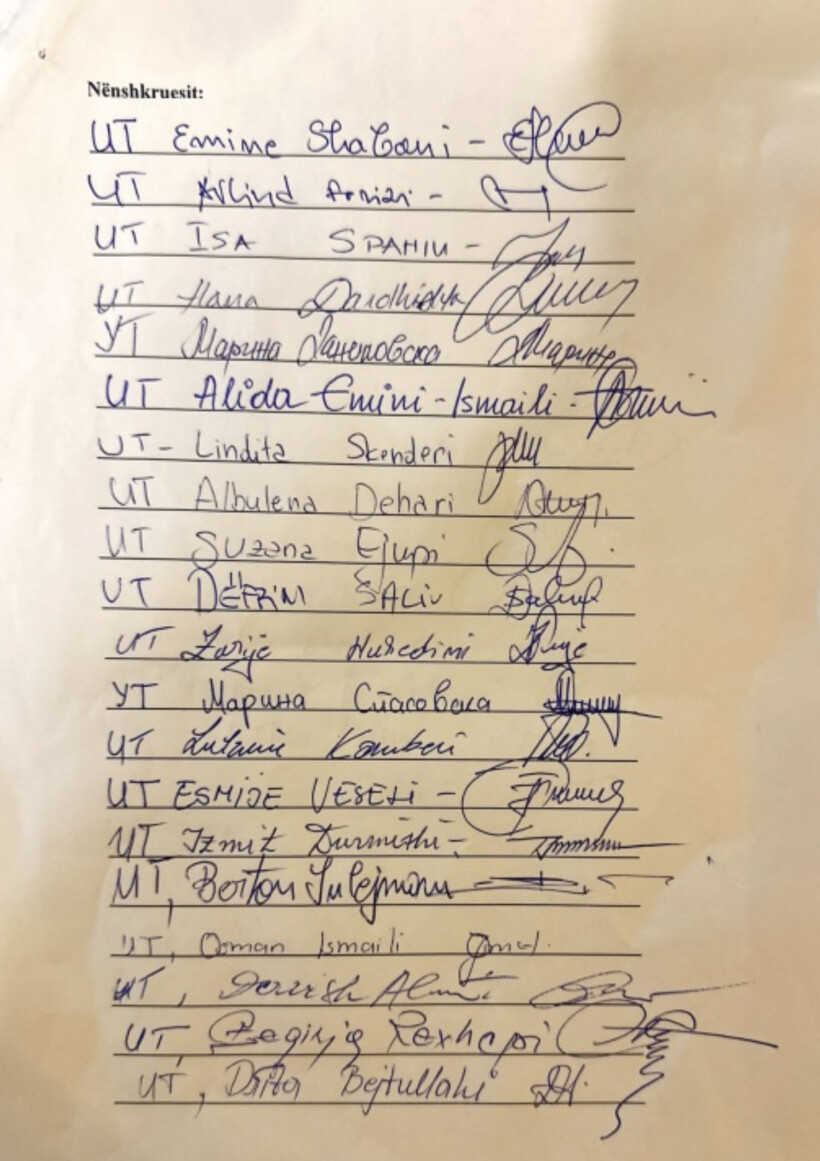 Nënshkruesit:
UT Emine Shabani -
UT Arlind
UT ISA SPAHIU -
UT Hana
УТ Марина
UT Alida Emini - Ismaili -
UT - Lindita Skenderi
UT Albulena Dehari
UT Suzana Ejupi
UT DËFRIM SALIU
UT Zarije Nuredini
УТ Марина Спасовска
UT Lutanie Kamberi
UT ESMIJE VESELI -
UT Izmit Durmishi -
UT, Sulejmani
UT, Osman Ismaili
UT, Dervish
UT, Zeqirja Rexhepi
UT, Drita Bejtullahi